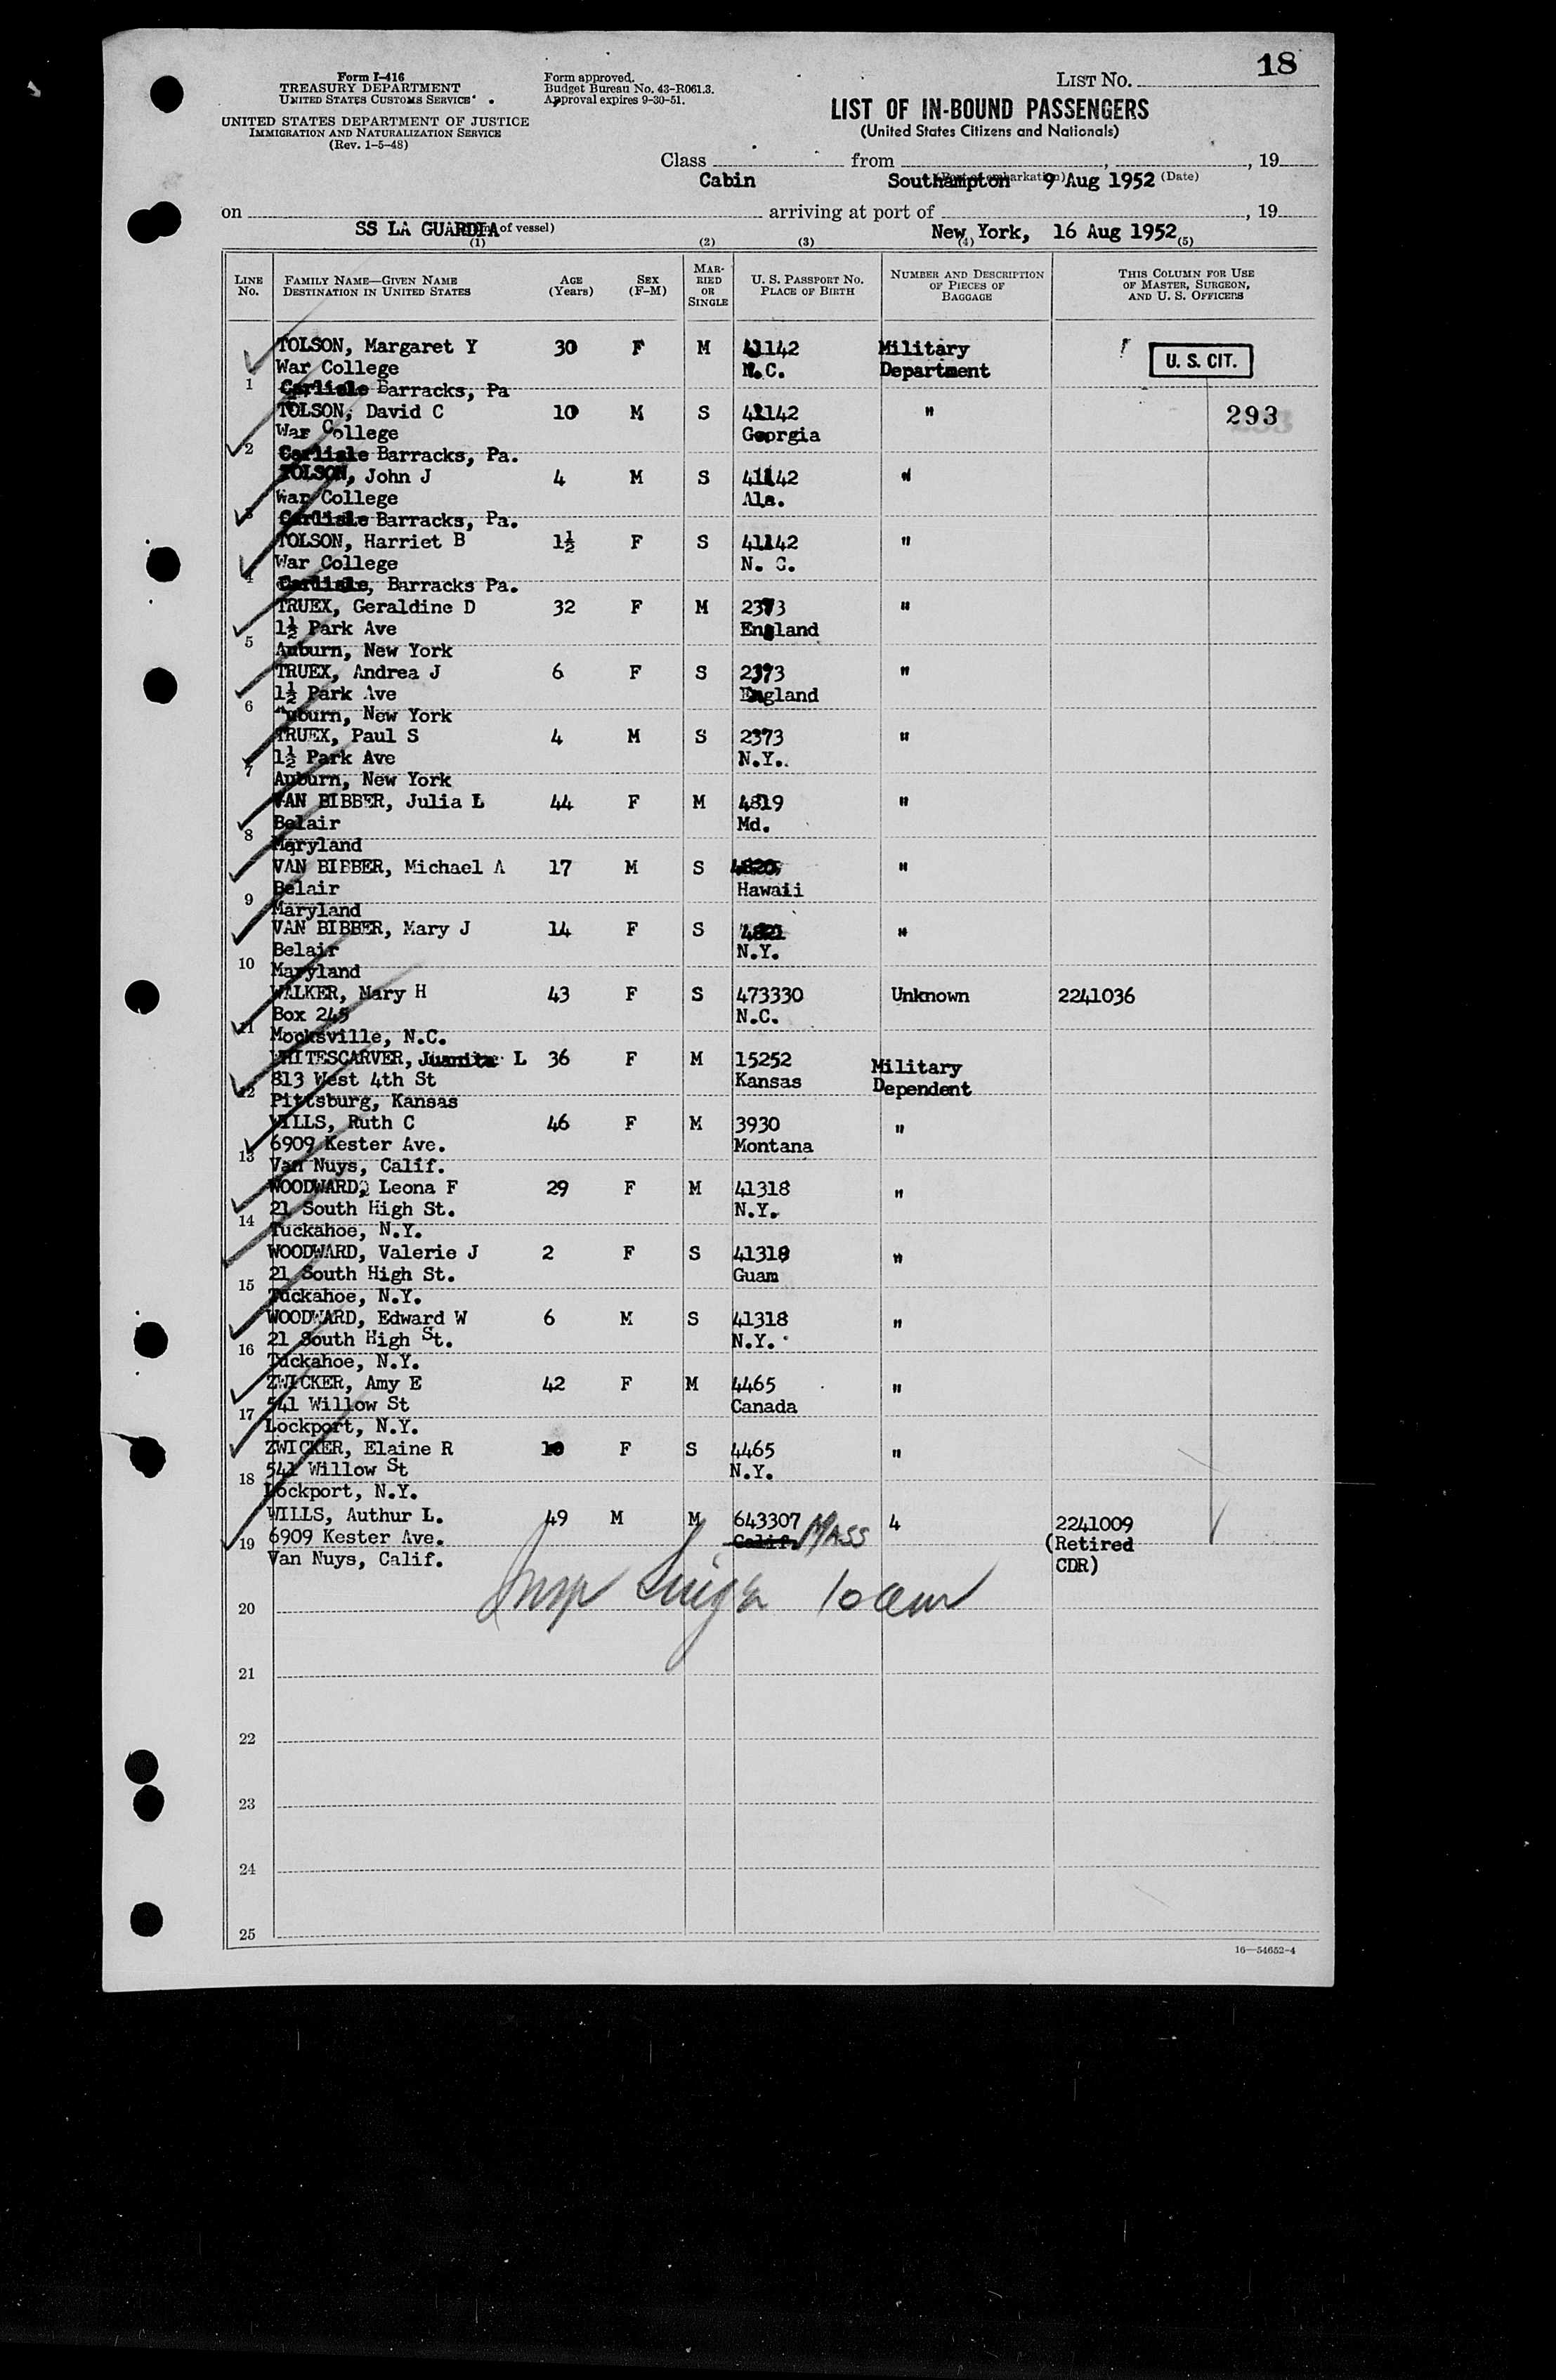 18
Form I-416
TREASURY DEPARTMENT
UNITED STATES CUSTOMS SERVICE
UNITED STATES DEPARTMENT OF JUSTICE
IMMIGRATION AND NATURALIZATION SERVICE
(Rev. 1-5-48)
Form approved.
Budget Bureau No. 43-R061.3.
Approval expires 9-30-51.
LIST NO.
LIST OF IN-BOUND PASSENGERS
(United States Citizens and Nationals)
Class from , , 19
Cabin Southampton 9 Aug 1952 (Date)
on arriving at port of , 19
SS LA GUARDIA of vessel) New York, 16 Aug 1952
(1) (2) (3) (4) (5)
LINE No. FAMILY NAME—GIVEN NAME DESTINATION IN UNITED STATES AGE (Years) SEX (F-M) MARRIED OR SINGLE U. S. PASSPORT NO. PLACE OF BIRTH NUMBER AND DESCRIPTION OF PIECES OF BAGGAGE THIS COLUMN FOR USE OF MASTER, SURGEON, AND U. S. OFFICERS
TOLSON, Margaret Y 30 F M 41142 Military U. S. CIT.
War College N.C. Department
1 Carlisle Barracks, Pa
TOLSON, David C 10 M S 41142 " 293
War College Georgia
2 Carlisle Barracks, Pa.
TOLSON, John J 4 M S 41142 "
War College Ala.
3 Carlisle Barracks, Pa.
TOLSON, Harriet B 1½ F S 41142 "
War College N. C.
4 Carlisle, Barracks Pa.
TRUEX, Geraldine D 32 F M 2373 "
1½ Park Ave England
5 Auburn, New York
TRUEX, Andrea J 6 F S 2373 "
1½ Park Ave England
6 Auburn, New York
TRUEX, Paul S 4 M S 2373 "
1½ Park Ave N.Y.
7 Auburn, New York
VAN BIBBER, Julia L 44 F M 4819 "
Belair Md.
8 Maryland
VAN BIBBER, Michael A 17 M S 4820 "
Belair Hawaii
9 Maryland
VAN BIBBER, Mary J 14 F S 4821 "
Belair N.Y.
10 Maryland
WALKER, Mary H 43 F S 473330 Unknown 2241036
Box 245 N.C.
11 Mocksville, N.C.
WHITESCARVER, Juanita L 36 F M 15252 Military
813 West 4th St Kansas Dependent
12 Pittsburg, Kansas
WILLS, Ruth C 46 F M 3930 "
6909 Kester Ave. Montana
13 Van Nuys, Calif.
WOODWARD, Leona F 29 F M 41318 "
21 South High St. N.Y.
14 Tuckahoe, N.Y.
WOODWARD, Valerie J 2 F S 41318 "
21 South High St. Guam
15 Tuckahoe, N.Y.
WOODWARD, Edward W 6 M S 41318 "
21 South High St. N.Y.
16 Tuckahoe, N.Y.
ZWICKER, Amy E 42 F M 4465 "
541 Willow St Canada
17 Lockport, N.Y.
ZWICKER, Elaine R 10 F S 4465 "
541 Willow St N.Y.
18 Lockport, N.Y.
WILLS, Authur L. 49 M M 643307 4 2241009
19 6909 Kester Ave. Calif. MASS (Retired
Van Nuys, Calif. CDR)
Insp 10am
20
21
22
23
24
25
16—54652-4